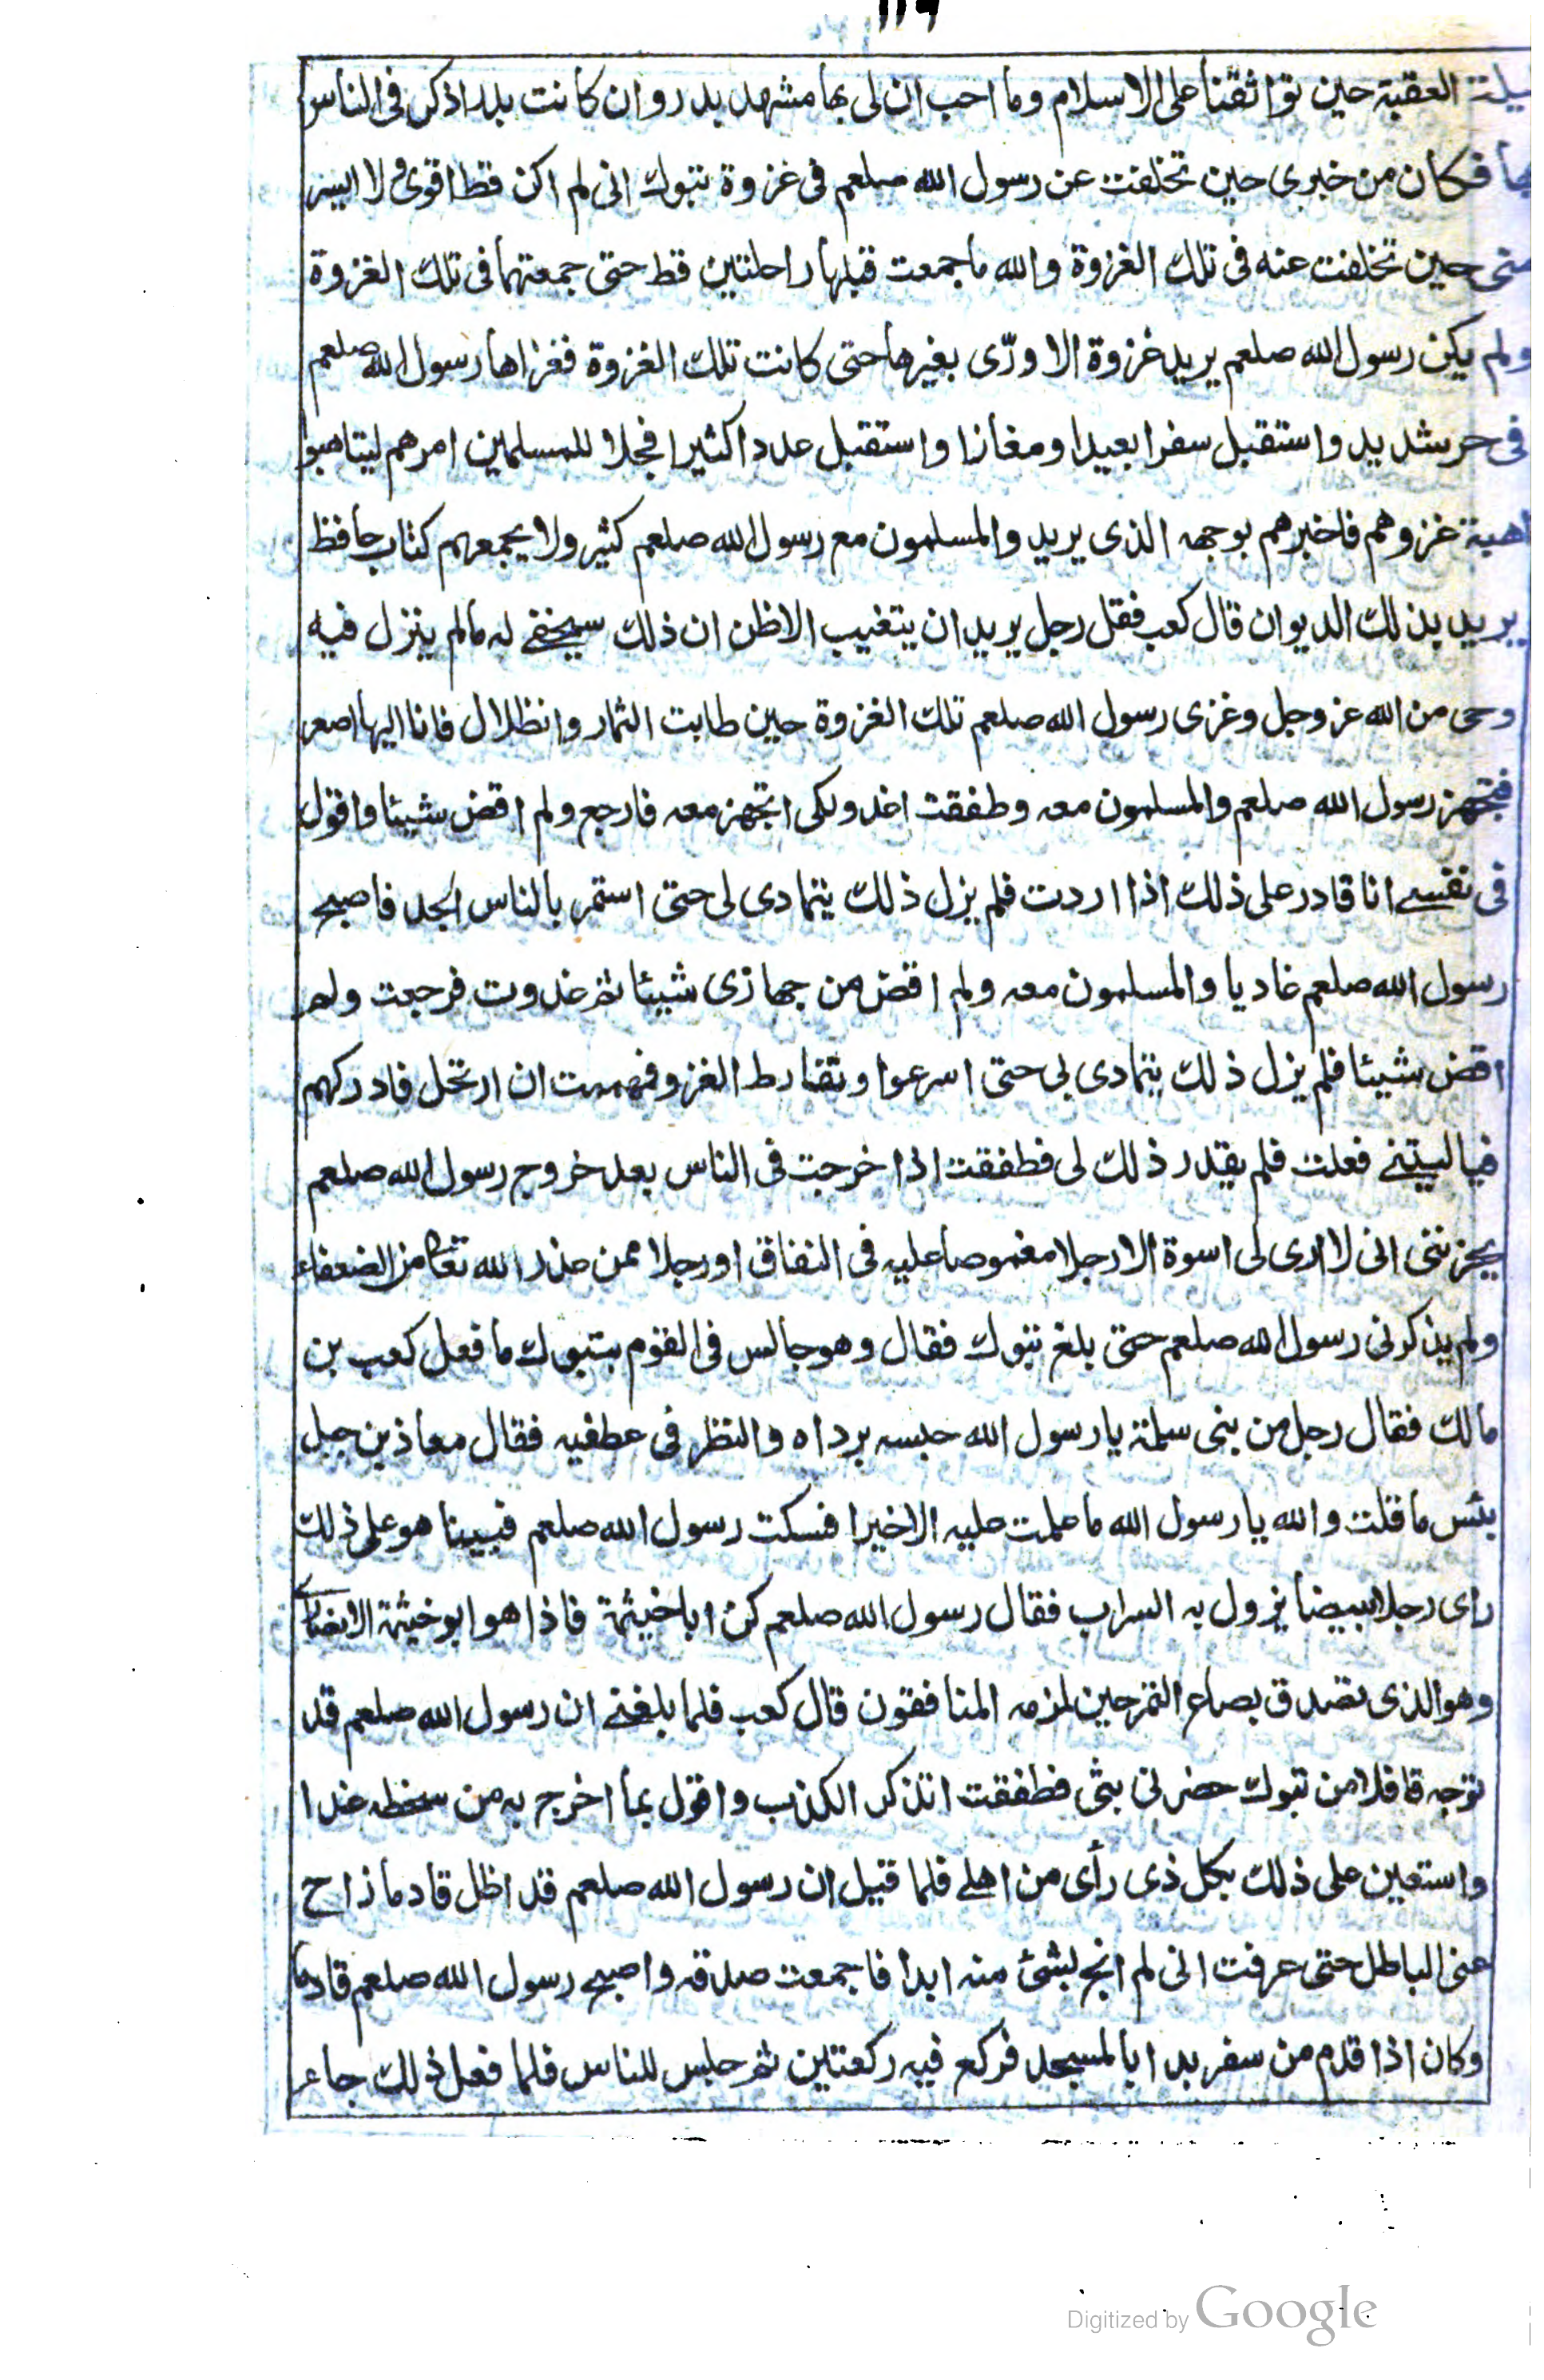 ١١٩
ليلة العقبة حين تواثقنا على الاسلام وما احب ان لى بها مشهد بدر وان كانت بدرا ذكر فى الناس
فكان من خبرى حين تخلفت عن رسول الله صلعم فى غزوة تبوك انى لم اكن قط اقوى ولا ايسر
منى حين تخلفت عنه فى تلك الغزوة والله ما جمعت قبلها راحلتين قط حتى جمعتهما فى تلك الغزوة
ولم يكن رسول الله صلعم يريد غزوة الا ورّى بغيرها حتى كانت تلك الغزوة فغزاها رسول الله صلعم
فى حر شديد واستقبل سفرا بعيدا ومفازا واستقبل عددا كثيرا فجلا للمسلمين امرهم ليتاهبوا
اهبة غزوهم فاخبرهم بوجهه الذى يريد والمسلمون مع رسول الله صلعم كثير ولا يجمعهم كتاب حافظ
يريد بذلك الديوان قال كعب فقل رجل يريد ان يتغيب الا ظن ان ذلك سيخفى له مالم ينزل فيه
وحى من الله عز وجل وغزى رسول الله صلعم تلك الغزوة حين طابت الثمار وانظلال فانا اليها اصعر
فتجهز رسول الله صلعم والمسلمون معه وطفقت اغدو لكى اتجهز معه فارجع ولم اقض شيئا واقول
فى نفسے انا قادر على ذلك اذا اردت فلم يزل ذلك يتمادى لى حتى استمر بالناس الجد فاصبح
رسول الله صلعم غاديا والمسلمون معه ولم اقض من جهازى شيئا ثم غدوت فرجعت ولم
اقض شيئا فلم يزل ذلك يتمادى بى حتى اسرعوا وتفارط الغزو فهممت ان ارتحل فادركهم
فيا ليتنے فعلت فلم يقدر ذلك لى فطفقت اذا خرجت فى الناس بعد خروج رسول الله صلعم
يحزننى انى لا ارى لى اسوة الا رجلا مغموصا عليه فى النفاق او رجلا ممن عذر الله تعا من الضعفاء
ولم يذكرنى رسول الله صلعم حتى بلغ تبوك فقال وهو جالس فى القوم بتبوك ما فعل كعب بن
مالك فقال رجل من بنى سلمة يا رسول الله حبسه برداه والنظر فى عطفيه فقال معاذ بن جبل
بئس ما قلت والله يا رسول الله ما علمت عليه الا خيرا فسكت رسول الله صلعم فبينا هو على ذلك
راى رجلا مبيضا يزول به السراب فقال رسول الله صلعم كن ابا خيثمة فاذا هو ابو خيثمة الانصارى
وهو الذى تصدق بصاع التمر حين لمزه المنافقون قال كعب فلما بلغنے ان رسول الله صلعم قد
توجه قافلا من تبوك حضرنى بثى فطفقت اتذكر الكذب واقول بما اخرج به من سخطه غدا
واستعين على ذلك بكل ذى رأى من اهلے فلما قيل ان رسول الله صلعم قد اظل قادما زاح
عنى الباطل حتى عرفت انى لم انج بشئ منه ابدا فاجمعت صدقه واصبح رسول الله صلعم قادما
وكان اذا قدم من سفر بدا بالمسجد فركع فيه ركعتين ثم جلس للناس فلما فعل ذلك جاء
Digitized by Google